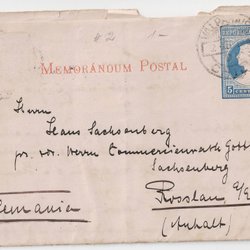 # 2 1-
REPUBLICA
5 CENT
MEMORÁNDUM POSTAL
Herrn
Hans Sachsenberg
pr. adr. Herrn Commercienrath Gott
Sachsenberg
Rosslau a/E
(Anhalt)
lemania